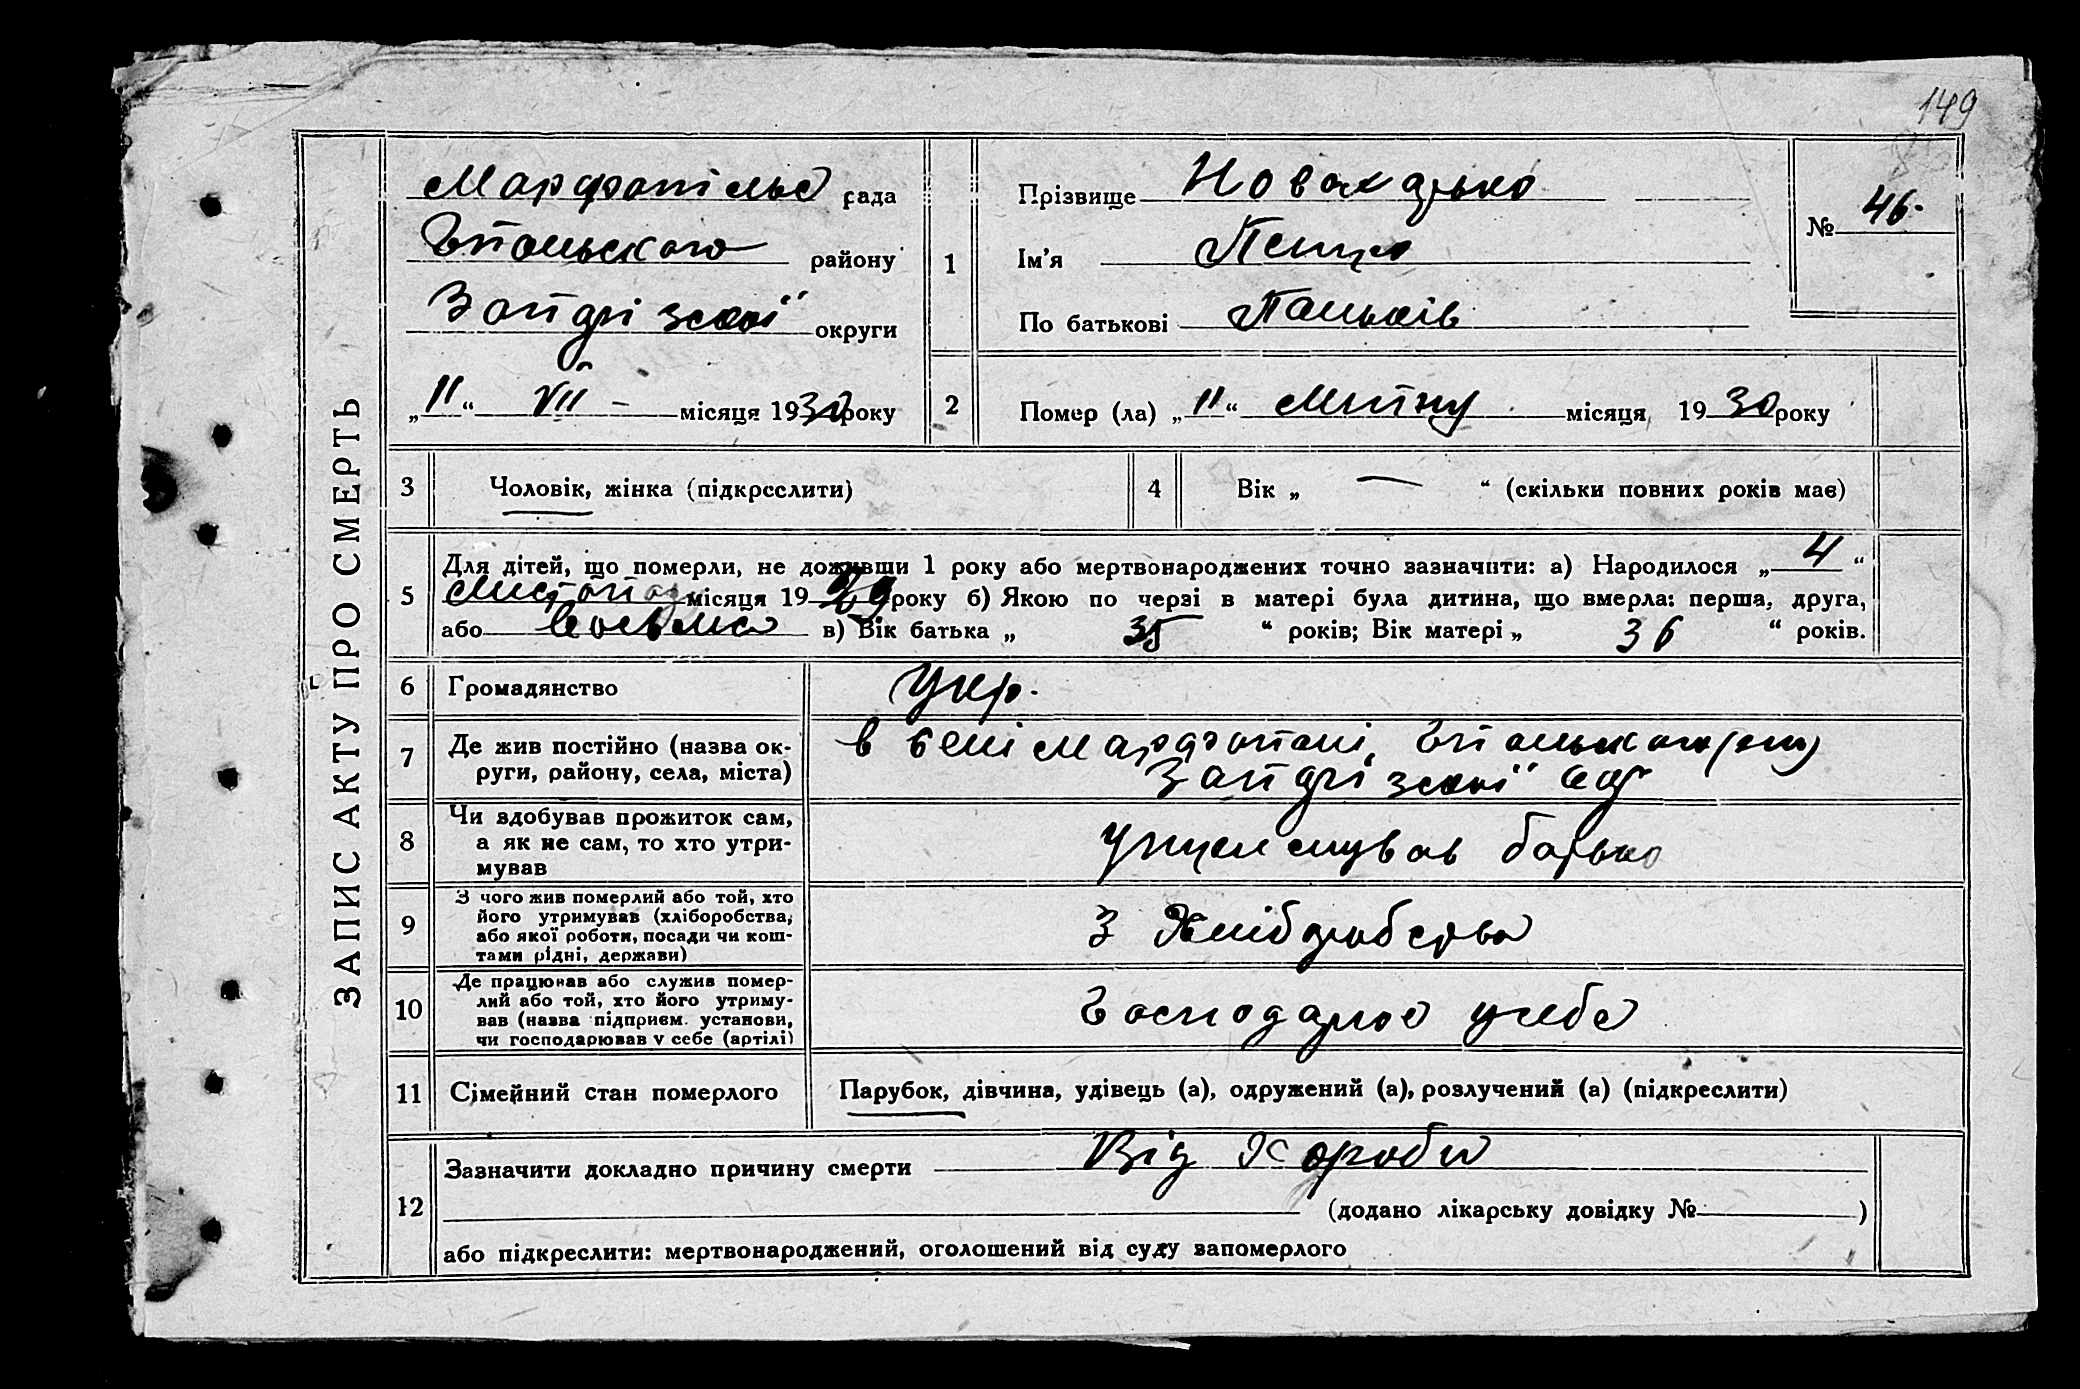 149
ЗАПИС АКТУ ПРО СМЕРТЬ
Марфопільс рада
Гпольского району
Запорізскої округи
„11“ VII – місяця 1930 року
1
Прізвище Новохадько
Ім'я Петро
По батькові Паньків
№ 46.
2 Помер (ла) „11“ Липну місяця, 1930 року
3 Чоловік, жінка (підкреслити)
4 Вік „ — “ (скільки повних років має)
5 Для дітей, що померли, не доживши 1 року або мертвонароджених точно зазначити: а) Народилося „4“
Листопад місяця 1929 року б) Якою по черзі в матері була дитина, що вмерла: перша, друга,
або восьма в) Вік батька „35“ років; Вік матері „36“ років.
6 Громадянство Укр.
7 Де жив постійно (назва ок-
руги, району, села, міста)
в селі Марфополі,
Запорізскої окр
8 Чи здобував прожиток сам,
а як не сам, то хто утри-
мував
батько
9 З чого жив померлий або той, хто
його утримував (хліборобства,
або якої роботи, посади чи кош-
тами рідні, держави)
З Хліборобства
10 Де працював або служив помер-
лий або той, хто його утриму-
вав (назва підприєм. установи,
чи господарював у себе (артілі)
Господарює у себе
11 Сімейний стан померлого
Парубок, дівчина, удівець (а), одружений (а), розлучений (а) (підкреслити)
12 Зазначити докладно причину смерти Від Хороби
(додано лікарську довідку № )
або підкреслити: мертвонароджений, оголошений від суду запомерлого